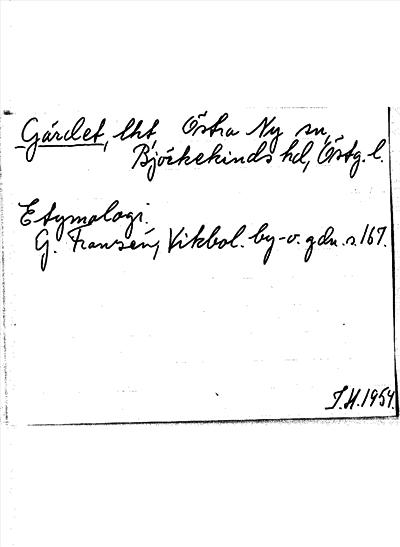 Gärdet, lht, Östra Ny sn,
Björkekinds hd, Östg. l.
Etymologi.
G. Franzén, Vikbol. by-o. gdn. s. 167.
J.H. 1954.